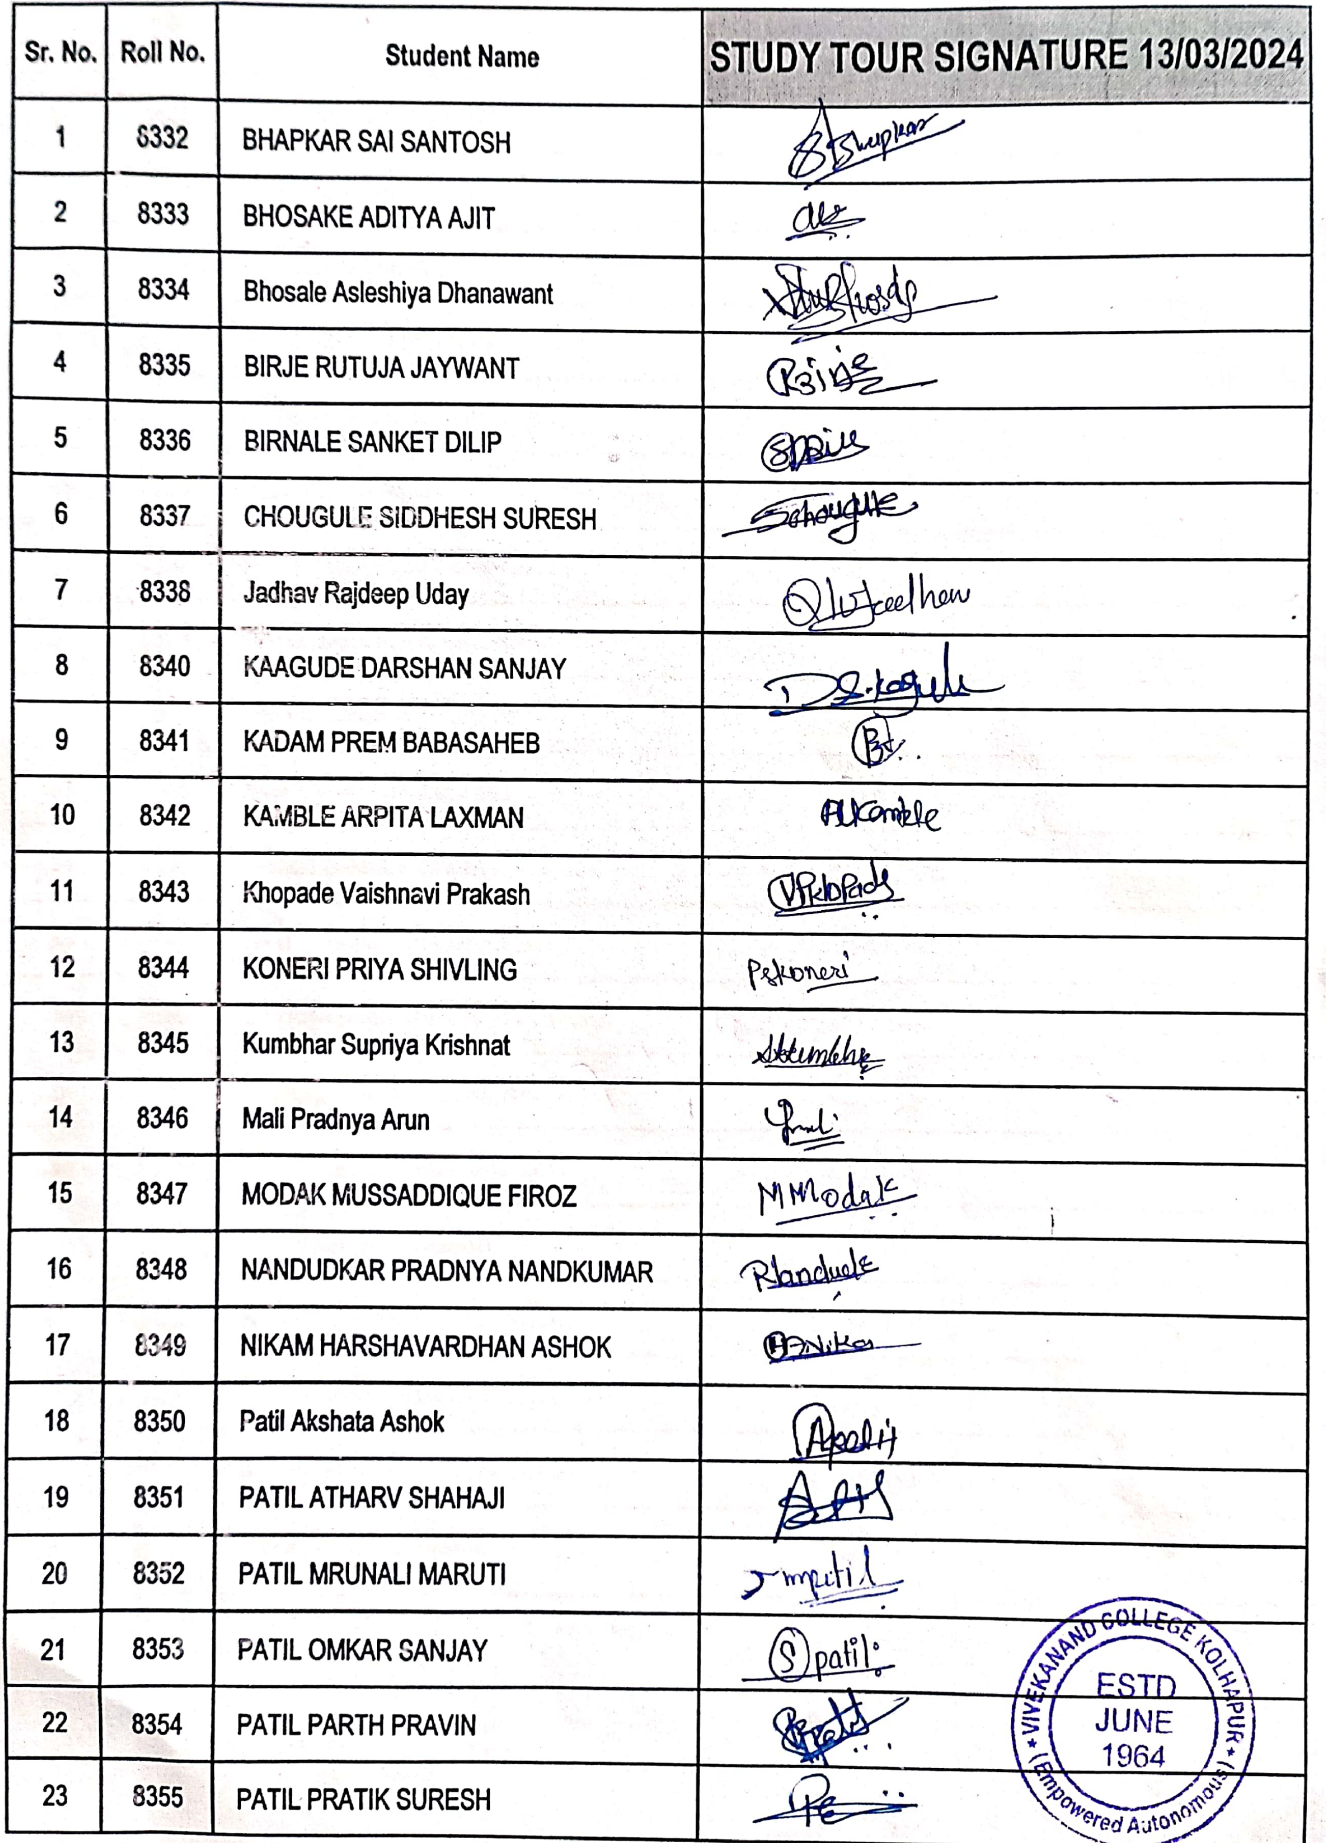 Sr. No. Roll No. Student Name STUDY TOUR SIGNATURE 13/03/2024
1 8332 BHAPKAR SAI SANTOSH
2 8333 BHOSAKE ADITYA AJIT
3 8334 Bhosale Asleshiya Dhanawant
4 8335 BIRJE RUTUJA JAYWANT
5 8336 BIRNALE SANKET DILIP
6 8337 CHOUGULE SIDDHESH SURESH
7 8338 Jadhav Rajdeep Uday
8 8340 KAAGUDE DARSHAN SANJAY
9 8341 KADAM PREM BABASAHEB
10 8342 KAMBLE ARPITA LAXMAN
11 8343 Khopade Vaishnavi Prakash
12 8344 KONERI PRIYA SHIVLING Pskoneri
13 8345 Kumbhar Supriya Krishnat
14 8346 Mali Pradnya Arun
15 8347 MODAK MUSSADDIQUE FIROZ MMModak
16 8348 NANDUDKAR PRADNYA NANDKUMAR
17 8349 NIKAM HARSHAVARDHAN ASHOK
18 8350 Patil Akshata Ashok
19 8351 PATIL ATHARV SHAHAJI
20 8352 PATIL MRUNALI MARUTI
21 8353 PATIL OMKAR SANJAY Spatil
22 8354 PATIL PARTH PRAVIN
23 8355 PATIL PRATIK SURESH
VIVEKANAND COLLEGE KOLHAPUR
ESTD
JUNE
1964
(Empowered Autonomous)